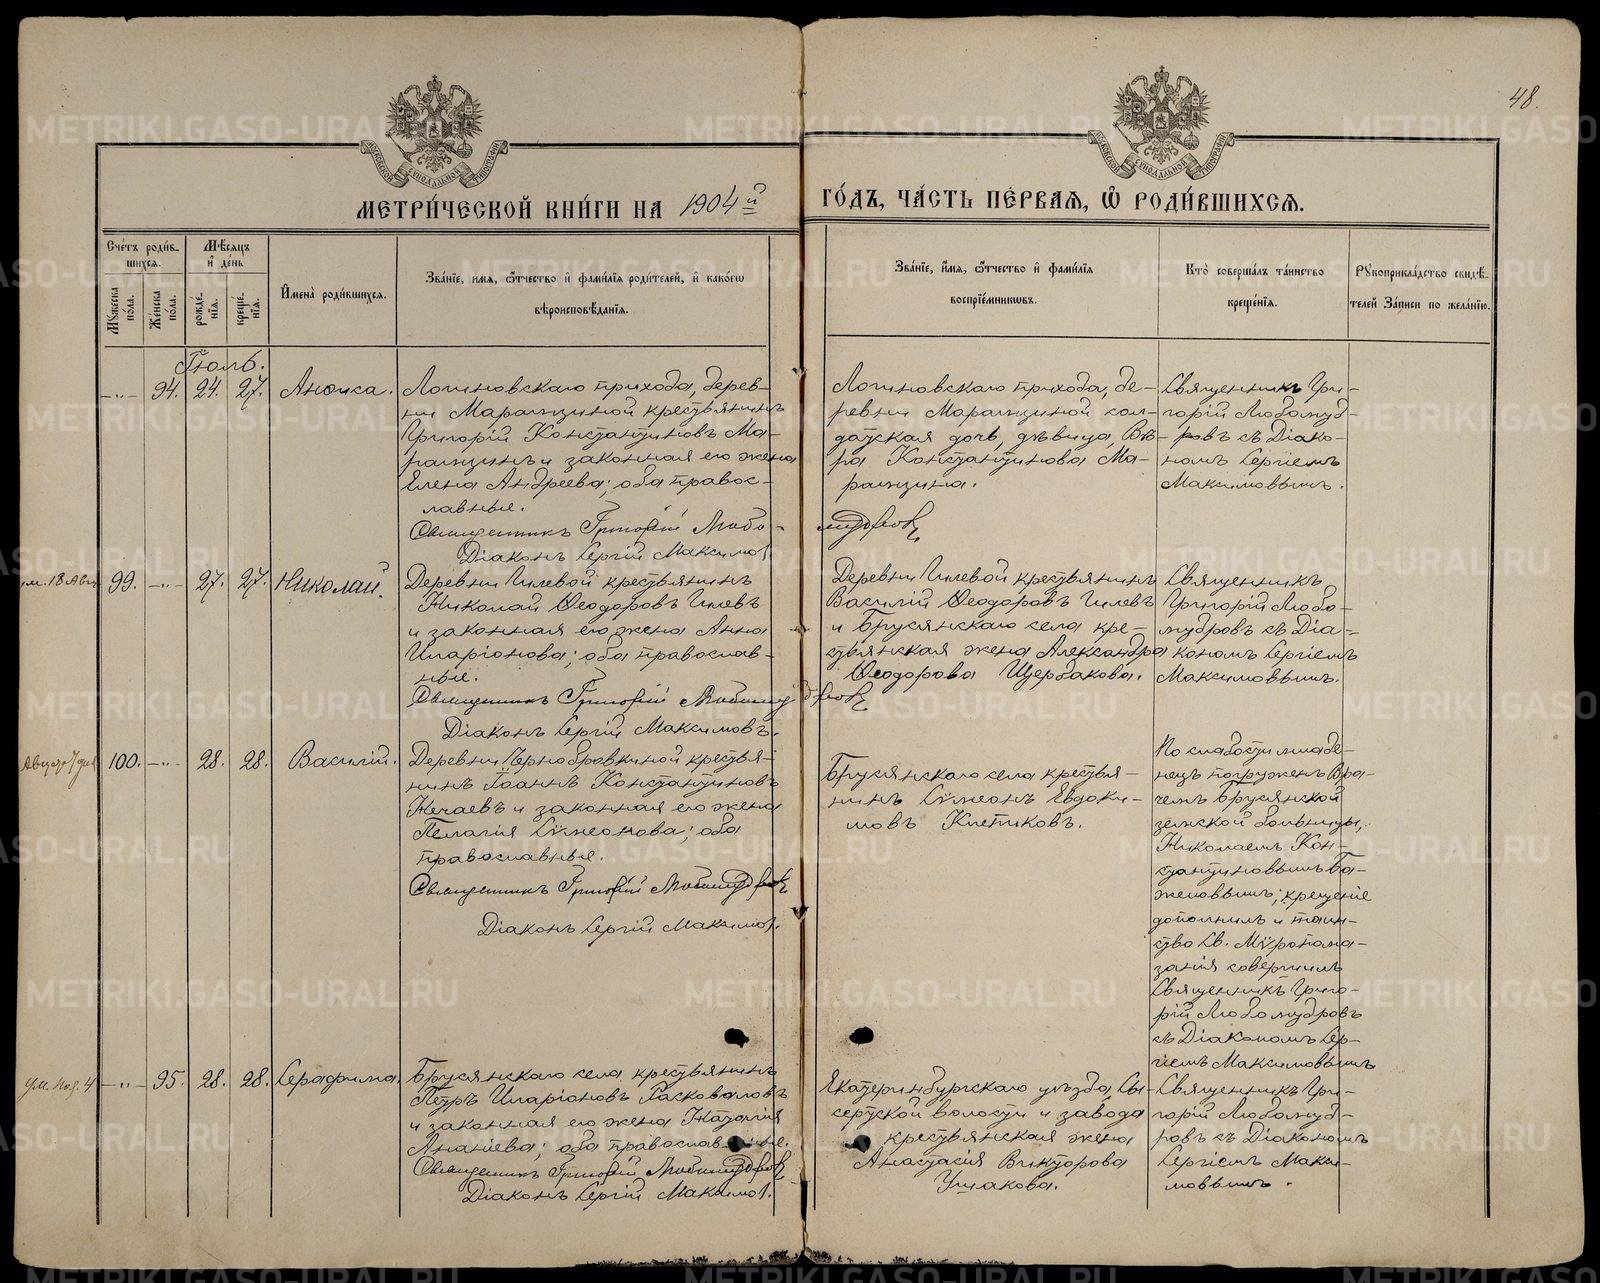 48.
МЕТРИ́ЧЕСКОЙ КНИ́ГИ НА 1904й ГО́ДЪ, ЧА́СТЬ ПЕ́РВАѦ, Ѽ РОДИ́ВШИХСѦ.
Сче́тъ роди́в-
шихсѧ.
Мꙋжеска по́ла.
Же́нска по́ла.
Мѣ́сѧцъ и де́нь
рожде́нїѧ.
креще́нїѧ.
И҆мена̀ роди́вшихсѧ.
Зва́нїе, имѧ, ѻтчество и фамилїѧ роди́телей, и како́гѡ
вѣроисповѣ́данїѧ.
Зва́нїе, имѧ, ѻтчество и фами́лїѧ
воспрїе́мникѡвъ.
Кто̀ соверша́лъ та́инство
креще́нїѧ.
Рꙋкоприкла́дство свидѣ́-
телей за́писи по жела́нїю.
Іюль.
94. 24. 27. Анѳиса.
Логиновскаго прихода, дерев-
ни Марамзиной крестьянинъ
Григорій Константиновъ Ма-
рамзинъ и законная его жена
Елена Андреева; оба правос-
лавные.
Священникъ Григорій Любо-
мудровъ
Діаконъ Сергій Максимов
Логиновскаго прихода, де-
ревни Марамзиной сол-
датская дочь, дѣвица, Вѣ-
ра Константинова Ма-
рамзина.
Священникъ Гри-
горій Любомуд-
ровъ съ Діако-
номъ Сергіемъ
Максимовымъ.
ум. 18 Авг.
99. 27. 27. Николай.
Деревни Гилевой крестьянинъ
Николай Ѳеодоровъ Гилевъ
и законная его жена Анна
Иларіонова; оба православ-
ные.
Священникъ Григорій Любомудровъ
Діаконъ Сергій Максимовъ.
Деревни Гилевой крестьянинъ
Василій Ѳеодоровъ Гилевъ
и Брусянскаго села кре-
стьянская жена Александра
Ѳеодорова Щербакова.
Священникъ
Григорій Любо-
мудровъ съ Діа-
кономъ Сергіемъ
Максимовымъ.
100. 28. 28. Василій.
Деревни Чернобровкиной крестья-
нинъ Іоаннъ Константиновъ
Нечаевъ и законная его жена
Пелагія Сѵмеонова; оба
православные.
Священникъ Григорій Любомудровъ
Діаконъ Сергій Максимов.
Брусянскаго села крестья-
нинъ Сѵмеонъ Евдоки-
мовъ Клепиковъ.
По слабости младе-
нецъ погруженъ Вра-
чемъ Брусянской
земской больницы,
Николаемъ Кон-
стантиновымъ Ба-
женовымъ; крещеніе
дополнилъ и таин-
ство Св. Мѵропома-
занія совершилъ
Священникъ Григо-
рій Любомудровъ
съ Діакономъ Сер-
гіемъ Максимовымъ
95. 28. 28. Серафима.
Брусянскаго села крестьянинъ
Петръ Иларіоновъ Расковаловъ
и законная его жена Наталія
Ананіева; оба православные.
Священникъ Григорій Любомудровъ
Діаконъ Сергій Максимов.
Екатеринбургскаго уѣзда, Сы-
сертской волости и завода
крестьянская жена
Анастасія Викторова
Ушакова.
Священникъ Гри-
горій Любомуд-
ровъ съ Діакономъ
Сергіемъ Макси-
мовымъ.
METRIKI.GASO-URAL.RU